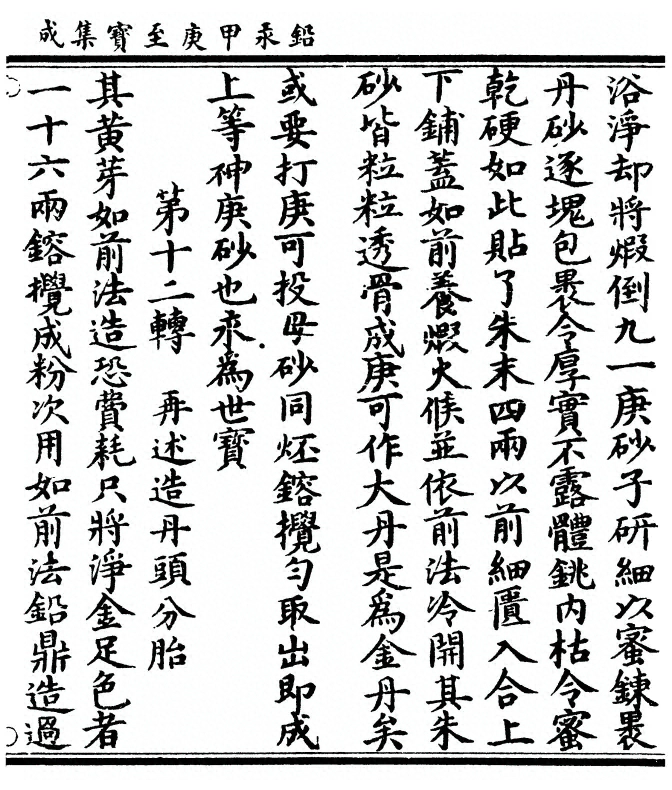 鉛汞甲庚至寶集成
浴淨却將煆倒九一庚砂子研細以蜜鍊裹
丹砂逐塊包裹令厚實不露體銚内枯令蜜
乾硬如此貼了朱末四兩以前細匱入合上
下鋪蓋如前養煆火候並依前法冷開其朱
砂皆粒粒透骨成庚可作大丹是為金丹矣
或要打庚可投母砂同坯鎔攪勻取出即成
上等神庚砂也永為世寶
第十二轉　再述造丹頭分胎
其黃芽如前法造恐費耗只將淨金足色者
一十六兩鎔攪成粉次用如前法鉛鼎造過